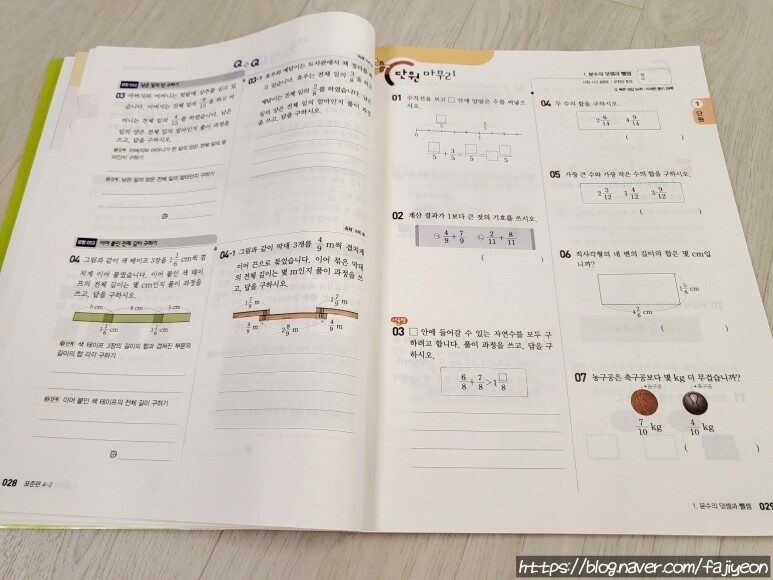 낮은 일의 양 구하기
03 아버지와 어머니는 텃밭에 상추를 심고 있
습니다. 아버지는 전체 일의 8/15을 하고 어
머니는 전체 일의 4/15를 하였습니다. 남은
일의 양은 전체 일의 얼마인지 풀이 과정을
쓰고, 답을 구하시오.
1단계 아버지와 어머니가 한 일의 양은 전체 일의 얼
마인지 구하기
2단계 남은 일의 양은 전체 일의 얼마인지 구하기
답
Q+Q
03-1 효우와 예담이는 도서관에서 책 정리를 하
고 있습니다. 효우는 전체 일의 3/8을 하고
예담이는 전체 일의 2/8를 하였습니다. 남은
일의 양은 전체 일의 얼마인지 풀이 과정을
쓰고, 답을 구하시오.
답
이어 붙인 전체 길이 구하기
04 그림과 같이 색 테이프 3장을 1 1/6 cm씩 겹
치게 이어 붙였습니다. 이어 붙인 색 테이
프의 전체 길이는 몇 cm인지 풀이 과정을
쓰고, 답을 구하시오.
5 cm 8 cm 5 cm
1 1/6 cm 1 1/6 cm
1단계 색 테이프 3장의 길이의 합과 겹쳐진 부분의
길이의 합 각각 구하기
2단계 이어 붙인 색 테이프의 전체 길이 구하기
답
04-1 그림과 같이 막대 3개를 4/9 m씩 겹치게
이어 끈으로 묶었습니다. 이어 묶은 막대
의 전체 길이는 몇 m인지 풀이 과정을 쓰
고, 답을 구하시오.
4/9 m 2 8/9 m 4/9 m
답
028 표준편 4-2
단원 마무리
1. 분수의 덧셈과 뺄셈
01 수직선을 보고 □ 안에 알맞은 수를 써넣으
시오.
□/5 + 3/5 = □/5 = □
02 계산 결과가 1보다 큰 것의 기호를 쓰시오.
㉠ 4/9 + 7/9 ㉡ 2/11 + 8/11
( )
서술형
03 □ 안에 들어갈 수 있는 자연수를 모두 구
하려고 합니다. 풀이 과정을 쓰고, 답을 구
하시오.
6/8 + 7/8 > 1 □/8
답
04 두 수의 합을 구하시오.
2 6/14 4 9/14
( )
05 가장 큰 수와 가장 작은 수의 합을 구하시오.
2 3/12 1 4/12 3 9/12
( )
06 직사각형의 네 변의 길이의 합은 몇 cm입
니까?
4 2/6 cm
( )
07 농구공은 축구공보다 몇 kg 더 무겁습니까?
농구공 축구공
7/10 kg 4/10 kg
( )
1 단원
1. 분수의 덧셈과 뺄셈 029
https://blog.naver.com/fajiyeon